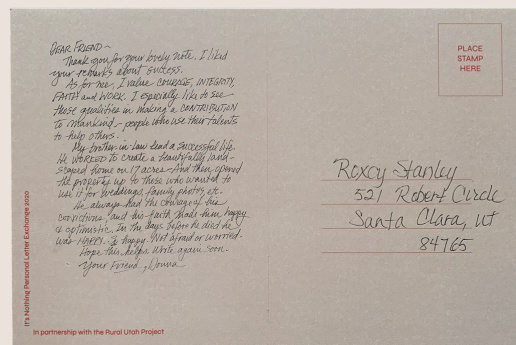 DEAR FRIEND~
Thank you for your lovely note. I liked
your remarks about success.
As for me, I value COURAGE, INTEGRITY,
FAITH and WORK. I especially like to see
those qualities in making a CONTRIBUTION
to mankind - people who use their talents
to help others.
My brother-in-law lead a successful life.
He WORKED to create a beautifully land-
scaped home on 17 acres - And then opened
the property up to those who wanted to
use it for weddings, family photos, etc.
He always had the courage of his
convictions and his faith made him happy
& optimistic. In the days before he died he
was HAPPY. So happy. Not afraid or worried.
Hope this helps. Write again soon -
Your Friend, Donna
PLACE
STAMP
HERE
Roxcy Stanley
521 Robert Circle
Santa Clara, Ut
84765
It's Nothing Personal Letter Exchange 2020
In partnership with the Rural Utah Project